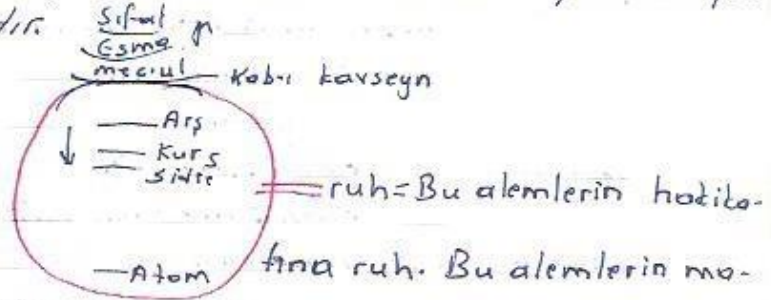 dır. Sıfat
Esma
meçiul
Kab-ı kavseyn
Arş
Kurs
Sidre
ruh=Bu alemlerin hakika-
Atom
tına ruh. Bu alemlerin ma-